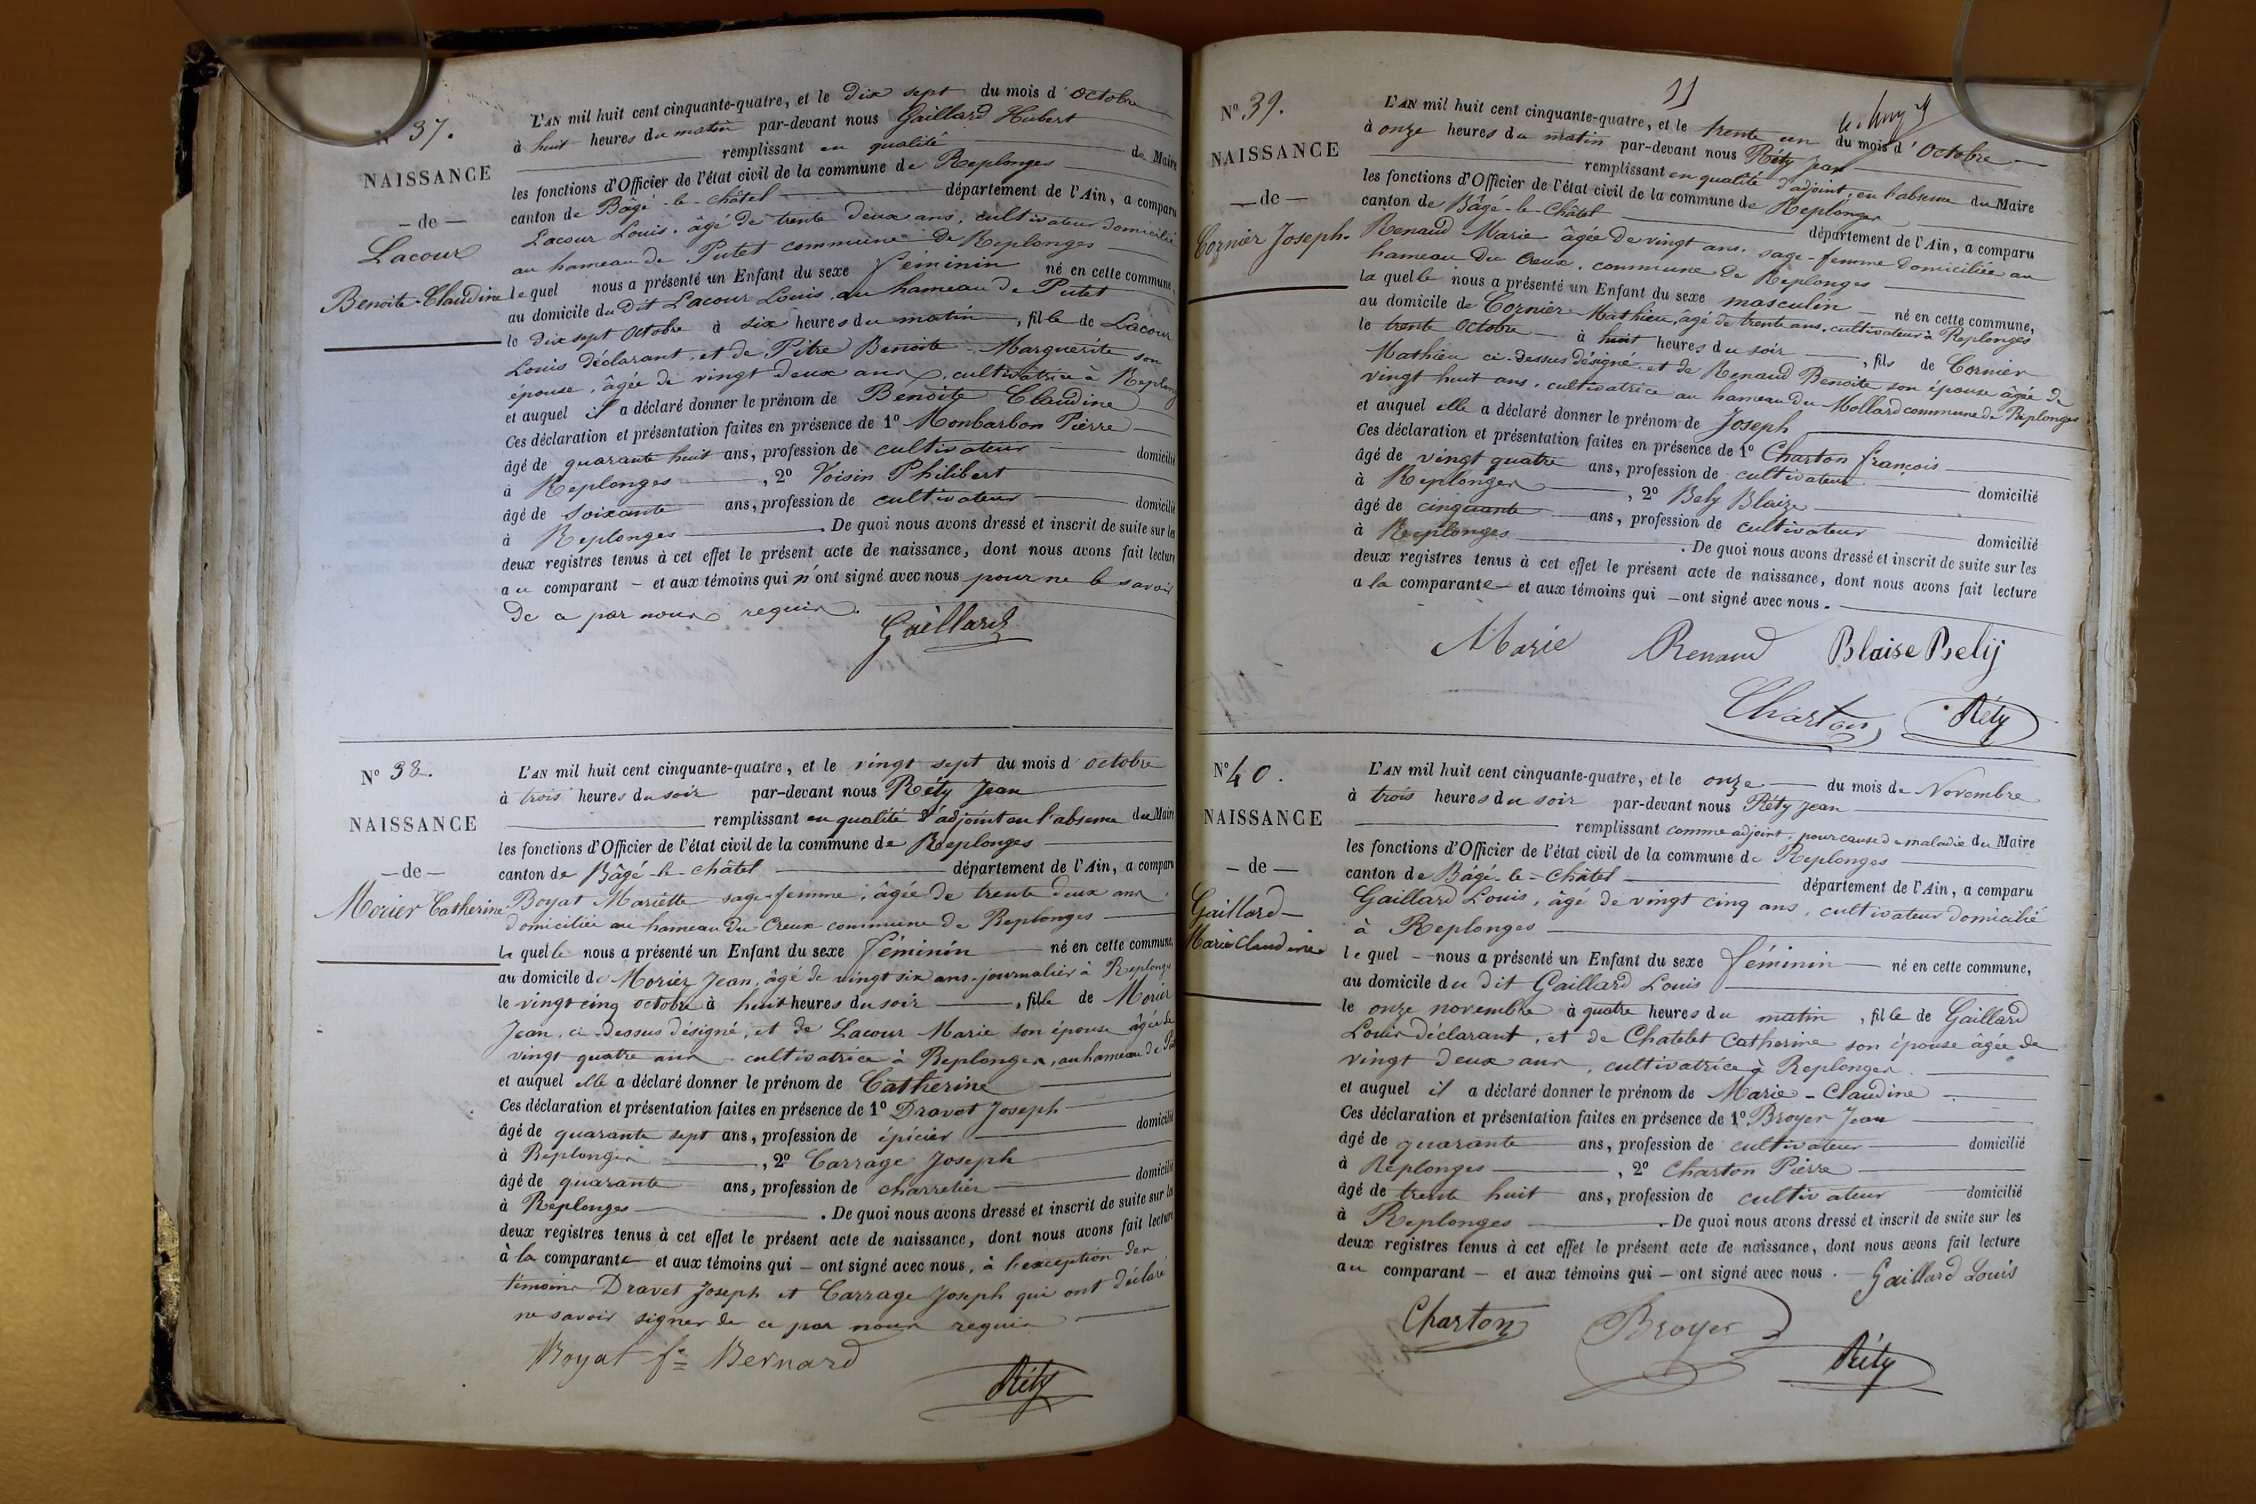 N° 37.
NAISSANCE
— de —
Lacour
Benoite-Claudine
L'AN mil huit cent cinquante-quatre, et le dix sept du mois d'Octobre
à huit heures du matin par-devant nous Gaillard Hubert
remplissant en qualité de Maire
les fonctions d'Officier de l'état civil de la commune de Replonges
canton de Bâgé-le-châtel département de l'Ain, a comparu
Lacour Louis, âgé de trente deux ans, cultivateur domicilié
au hameau de Putet commune de Replonges
lequel nous a présenté un Enfant du sexe féminin né en cette commune,
au domicile du dit Lacour Louis, au hameau de Putet
le dix sept Octobre à six heures du matin, fille de Lacour
Louis déclarant, et de Pitre Benoite Marguerite son
épouse, âgée de vingt deux ans, cultivatrice à Replong
et auquel il a déclaré donner le prénom de Benoite Claudine
Ces déclaration et présentation faites en présence de 1° Monbarbon Pierre
âgé de quarante huit ans, profession de cultivateur domicilié
à Replonges, 2° Voisin Philibert
âgé de soixante ans, profession de cultivateur domicilié
à Replonges. De quoi nous avons dressé et inscrit de suite sur les
deux registres tenus à cet effet le présent acte de naissance, dont nous avons fait lecture
au comparant — et aux témoins qui n'ont signé avec nous pour ne le savoir
de ce par nous requis.
Gaillard
N° 38.
NAISSANCE
— de —
Morier Catherine
L'AN mil huit cent cinquante-quatre, et le vingt sept du mois d'octobre
à trois heures du soir par-devant nous Réty Jean
remplissant en qualité d'adjoint en l'absence du Maire
les fonctions d'Officier de l'état civil de la commune de Replonges
canton de Bâgé-le-châtel département de l'Ain, a comparu
Boyat Mariette sage-femme, âgée de trente deux ans,
domiciliée au hameau du Creux commune de Replonges
laquelle nous a présenté un Enfant du sexe féminin né en cette commune,
au domicile de Morier Jean, âgé de vingt six ans, journalier à Replonges
le vingt cinq octobre à huit heures du soir, fille de Morier
Jean, ci-dessus désigné, et de Lacour Marie son épouse âgée de
vingt quatre ans, cultivatrice à Replonges, au hameau de
et auquel elle a déclaré donner le prénom de Catherine
Ces déclaration et présentation faites en présence de 1° Dravet Joseph
âgé de quarante sept ans, profession de épicier domicilié
à Replonges, 2° Carrage Joseph
âgé de quarante ans, profession de charretier domicilié
à Replonges. De quoi nous avons dressé et inscrit de suite sur les
deux registres tenus à cet effet le présent acte de naissance, dont nous avons fait lecture
à la comparante et aux témoins qui — ont signé avec nous, à l'exception des
témoins Dravet Joseph et Carrage Joseph qui ont déclaré
ne savoir signer de ce par nous requis
Boyat fe Bernard
Réty
11
N° 39.
NAISSANCE
— de —
Cornier Joseph.
L'AN mil huit cent cinquante-quatre, et le trente un du mois d'Octobre
à onze heures du matin par-devant nous Réty Jean
remplissant en qualité d'adjoint, en l'absence du Maire
les fonctions d'Officier de l'état civil de la commune de Replonges
canton de Bâgé-le-Châtel département de l'Ain, a comparu
Renaud Marie âgée de vingt ans, sage-femme domiciliée au
hameau du Creux, commune de Replonges
laquelle nous a présenté un Enfant du sexe masculin né en cette commune,
au domicile de Cornier Mathieu, âgé de trente ans, cultivateur à Replonges
le trente Octobre à huit heures du soir, fils de Cornier
Mathieu ci-dessus désigné, et de Renaud Benoite son épouse âgée de
vingt huit ans, cultivatrice au hameau du Mollard commune de Replonges
et auquel elle a déclaré donner le prénom de Joseph
Ces déclaration et présentation faites en présence de 1° Charton françois
âgé de vingt quatre ans, profession de cultivateur domicilié
à Replonges, 2° Bely Blaize
âgé de cinquante ans, profession de cultivateur domicilié
à Replonges. De quoi nous avons dressé et inscrit de suite sur les
deux registres tenus à cet effet le présent acte de naissance, dont nous avons fait lecture
a la comparante et aux témoins qui — ont signé avec nous.
Marie Renaud Blaise Belij
Charton Réty
N° 40.
NAISSANCE
— de —
Gaillard
Marie Claudine
L'AN mil huit cent cinquante-quatre, et le onze du mois de Novembre
à trois heures du soir par-devant nous Réty Jean
remplissant comme adjoint, pour cause de maladie du Maire
les fonctions d'Officier de l'état civil de la commune de Replonges
canton de Bâgé-le-Châtel département de l'Ain, a comparu
Gaillard Louis, âgé de vingt cinq ans, cultivateur domicilié
à Replonges
lequel — nous a présenté un Enfant du sexe féminin — né en cette commune,
au domicile du dit Gaillard Louis
le onze novembre à quatre heures du matin, fille de Gaillard
Louis déclarant, et de Chatelet Catherine son épouse agée de
vingt deux ans, cultivatrice à Replonges.
et auquel il a déclaré donner le prénom de Marie-Claudine
Ces déclaration et présentation faites en présence de 1° Broyer Jean
âgé de quarante ans, profession de cultivateur domicilié
à Replonges, 2° Charton Pierre
âgé de trente huit ans, profession de cultivateur domicilié
à Replonges. De quoi nous avons dressé et inscrit de suite sur les
deux registres tenus à cet effet le présent acte de naissance, dont nous avons fait lecture
au comparant — et aux témoins qui — ont signé avec nous. Gaillard Louis
Charton Broyer Réty